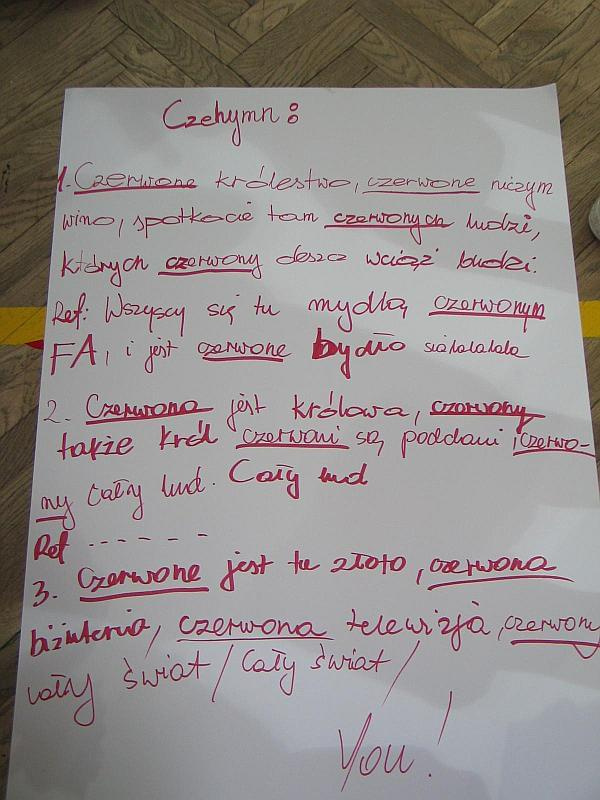 Czehymn:
1. Czerwone królestwo, czerwone niczym
wino, spotkacie tam czerwonych ludzi,
których czerwony deszcz wciąż budzi.
Ref: Wszyscy się tu mydlą czerwonym
FA, i jest czerwone bydło sialalalala
2. Czerwona jest królowa, czerwony
także król czerwani są poddani, czerwo-
ny cały lud. Cały lud
Ref ------
3. Czerwone jest tu złoto, czerwona
biżuteria, czerwona telewizja, czerwony
cały świat / Cały świat /
You!